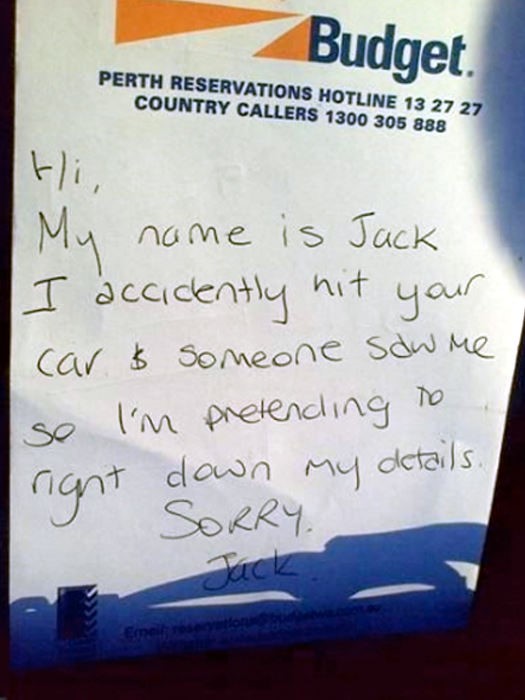 Budget.
PERTH RESERVATIONS HOTLINE 13 27 27
COUNTRY CALLERS 1300 305 888
Hi,
My name is Jack
I accidently hit your
car & someone saw me
so I'm pretending to
right down my details.
SORRY.
Jack
Email: reservations@budgetwa.com.au